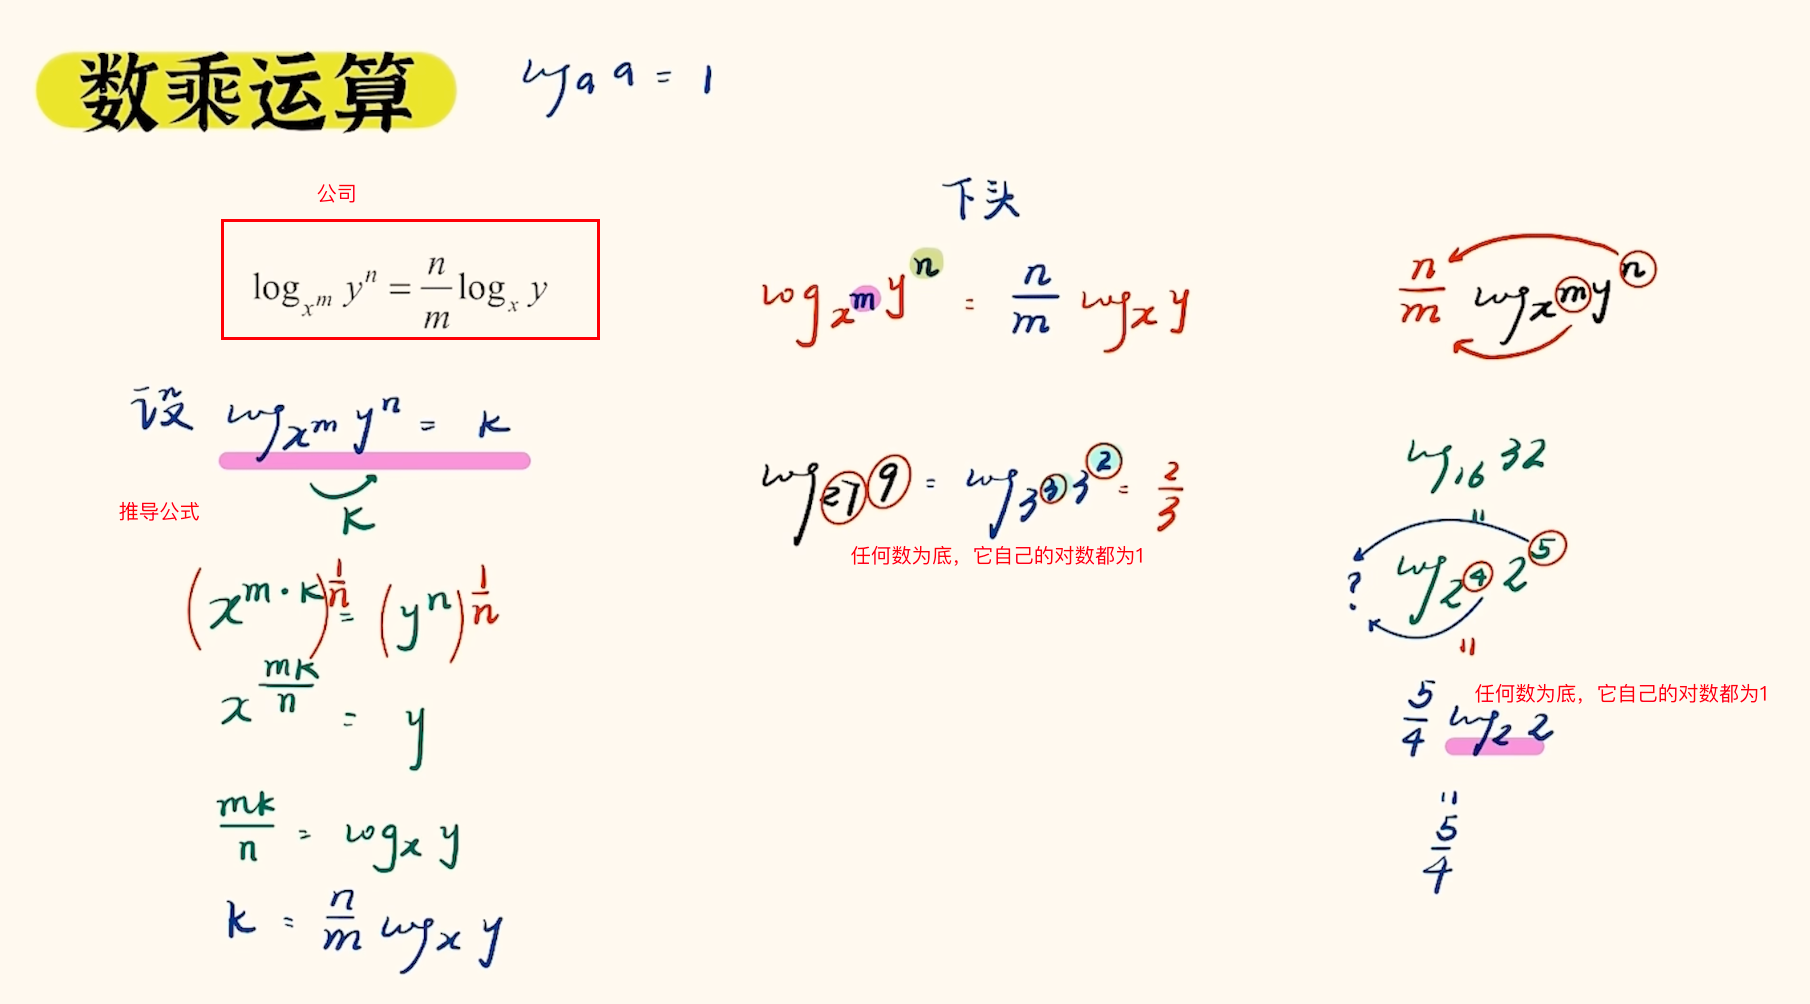 数乘运算
logₐ a = 1
公司
log_{x^m} y^n = n/m log_x y
设 log_{x^m} y^n = k
k
推导公式
(x^{m·k})^{1/n} = (y^n)^{1/n}
x^{mk/n} = y
mk/n = log_x y
k = n/m log_x y
下头
log_{x^m} y^n = n/m log_x y
log_{27} 9 = log_{3^3} 3^2 = 2/3
任何数为底，它自己的对数都为1
n/m log_{x^m} y^n
log_{16} 32
=
? log_{2^4} 2^5
=
5/4 log_2 2
任何数为底，它自己的对数都为1
=
5/4